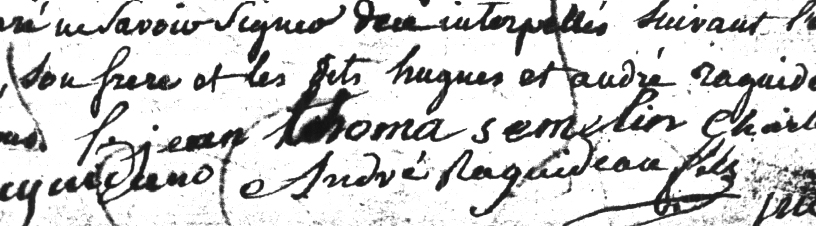 ne Savoir Signer de ce interpellés suivant
son frere et les dits hugues et andré raguide
jean thoma semelin Charl
André Raguideau fils